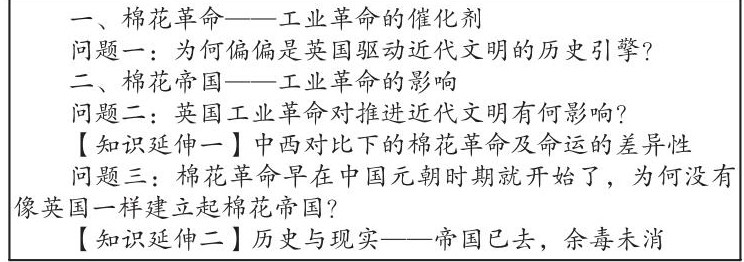 一、棉花革命——工业革命的催化剂
问题一：为何偏偏是英国驱动近代文明的历史引擎？
二、棉花帝国——工业革命的影响
问题二：英国工业革命对推进近代文明有何影响？
【知识延伸一】中西对比下的棉花革命及命运的差异性
问题三：棉花革命早在中国元朝时期就开始了，为何没有
像英国一样建立起棉花帝国？
【知识延伸二】历史与现实——帝国已去，余毒未消